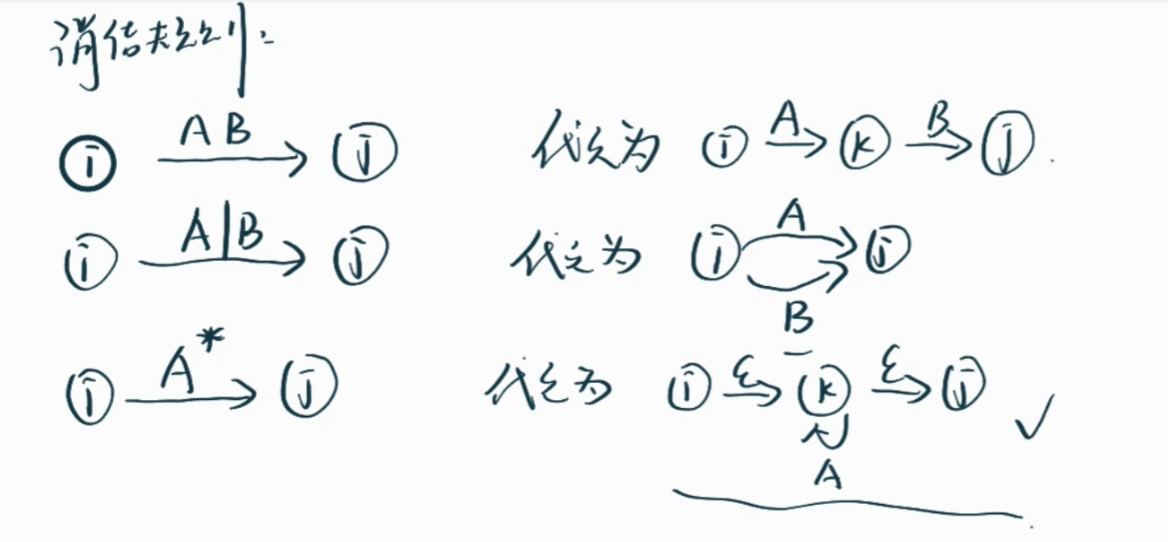 消结规则:
i AB j 代之为 i A k B j.
i A|B j 代之为 i A B j
i A* j 代之为 i ε k ε j A